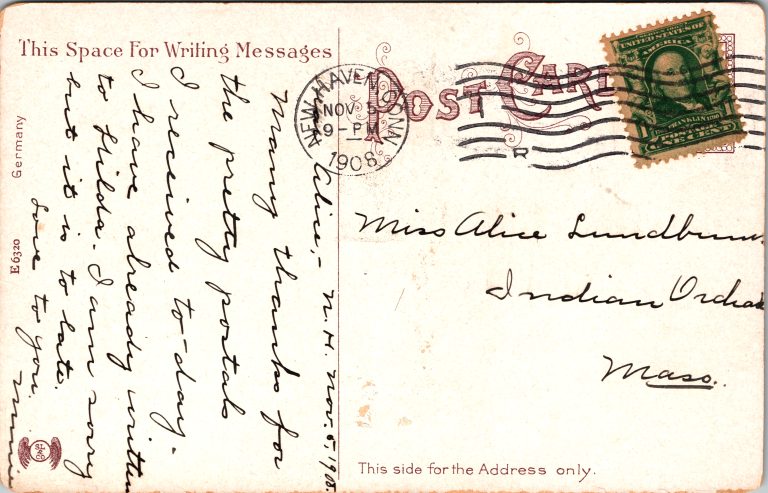 This Space For Writing Messages
POST CARD
NEW HAVEN CONN.
NOV 5
9-PM
1908
T
R
UNITED STATES OF
AMERICA
FRANKLIN
1 ONE CENT 1
Alice,- N.H. Nov. 5, 1908.
Many thanks for
the pretty postals
I received to-day.
I have already written
to Hilda. I am sorry
but it is to late.
Love to you.
Minnie
Miss Alice
Indian
Mass.
Germany
E 6320
SL
&
CO
This side for the Address only.